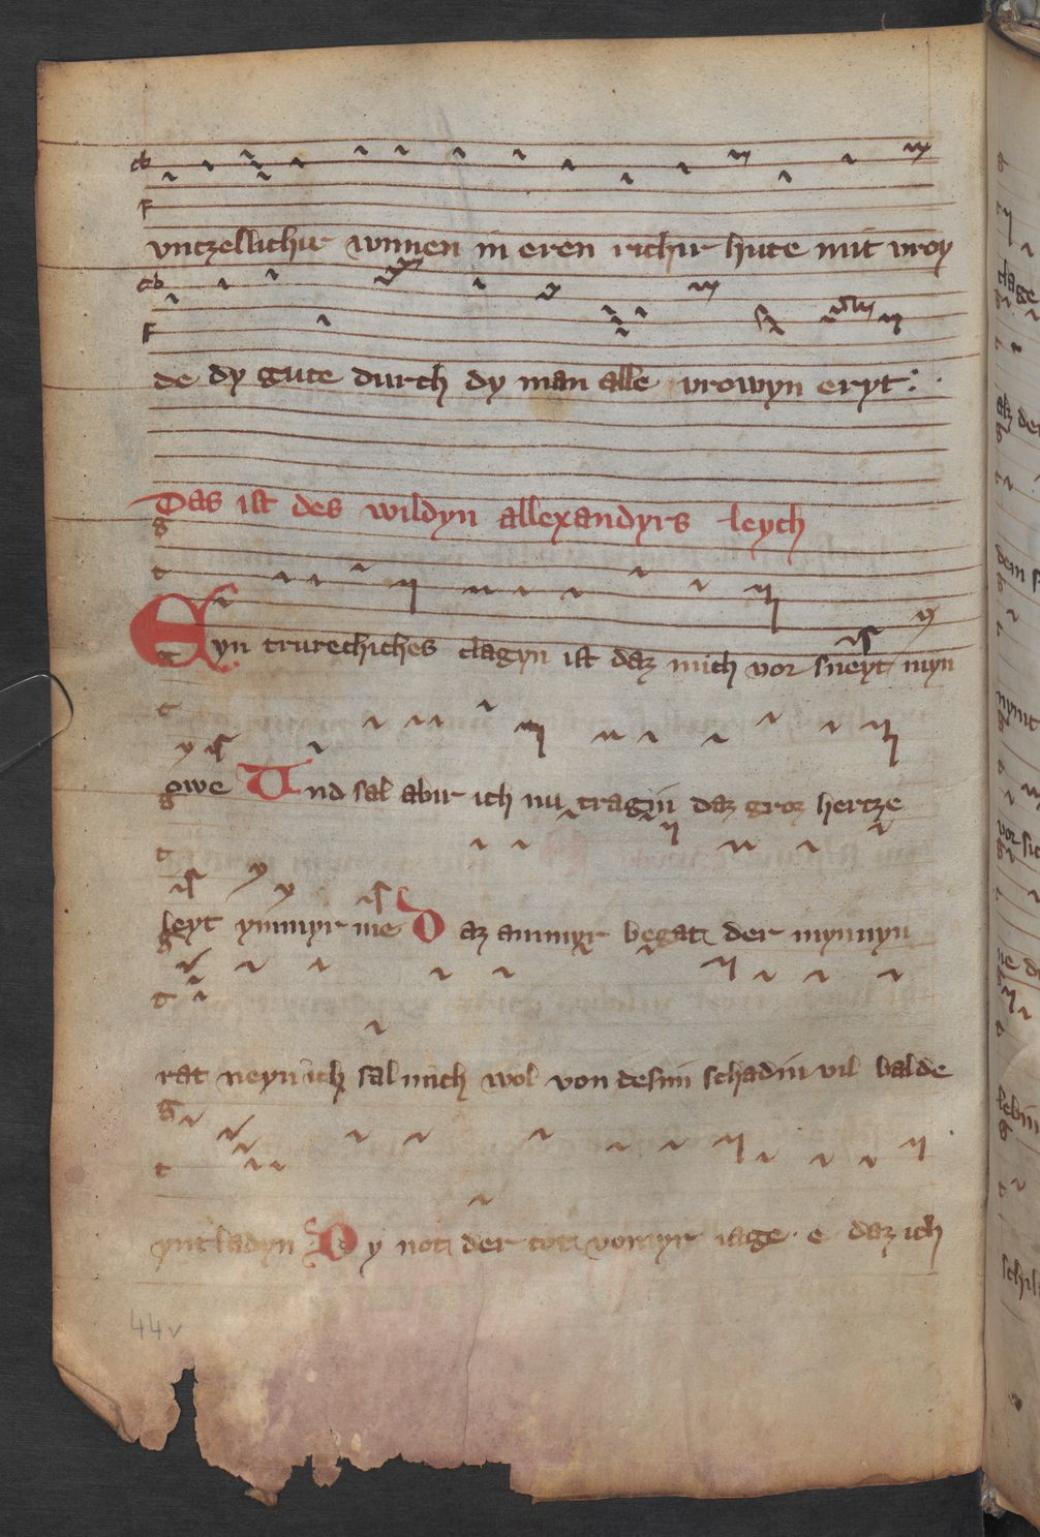 vntzellichir wnnen in eren richir hute mit vroy
de dy gute durch dy man alle vrowyn eryt :
Das ist des wildyn allexandyrs leych
Eyn trurechiches clagyn ist daz mich vor sneyt myn
owe Vnd sal abir ich nu tragin daz groz hertze
leyt ymmyr me Daz ammyr begat der mynnyn
rat neyn ich sal mich wol von desim schadin vil balde
yntladyn Dy not der tot vomyr iage · e daz ich
44v